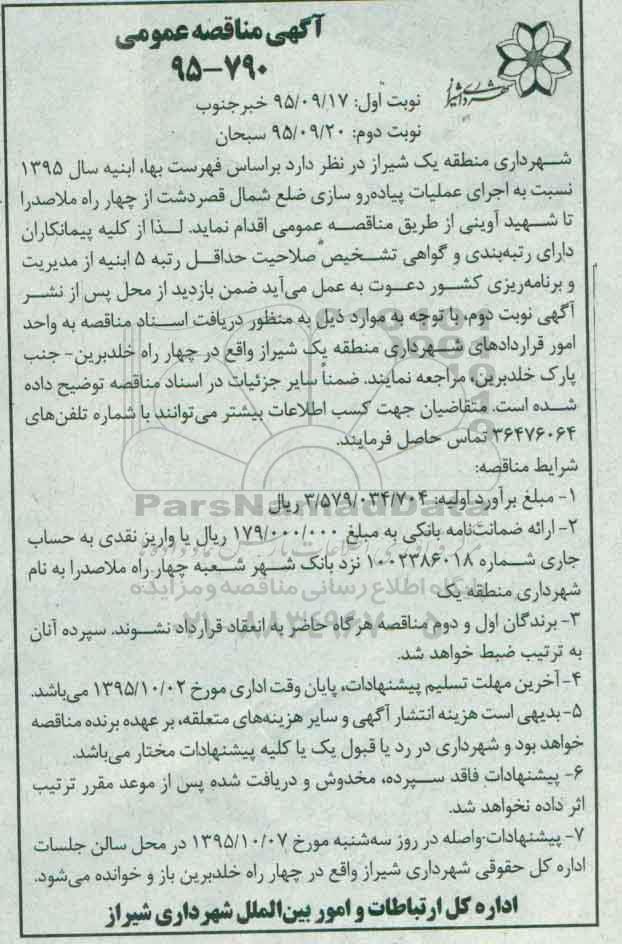 آگهی مناقصه عمومی
۹۵-۷۹۰
شهرداری شیراز
نوبت اول: ۹۵/۰۹/۱۷ خبرجنوب
نوبت دوم: ۹۵/۰۹/۲۰ سبحان
شهرداری منطقه یک شیراز در نظر دارد براساس فهرست بها، ابنیه سال ۱۳۹۵
نسبت به اجرای عملیات پیاده‌رو سازی ضلع شمال قصردشت از چهار راه ملاصدرا
تا شهید آوینی از طریق مناقصه عمومی اقدام نماید. لذا از کلیه پیمانکاران
دارای رتبه‌بندی و گواهی تشخیص صلاحیت حداقل رتبه ۵ ابنیه از مدیریت
و برنامه‌ریزی کشور دعوت به عمل می‌آید ضمن بازدید از محل پس از نشر
آگهی نوبت دوم، با توجه به موارد ذیل به منظور دریافت اسناد مناقصه به واحد
امور قراردادهای شهرداری منطقه یک شیراز واقع در چهار راه خلدبرین- جنب
پارک خلدبرین، مراجعه نمایند. ضمناً سایر جزئیات در اسناد مناقصه توضیح داده
شده است. متقاضیان جهت کسب اطلاعات بیشتر می‌توانند با شماره تلفن‌های
۳۶۴۷۶۰۶۴ تماس حاصل فرمایند.
شرایط مناقصه:
۱- مبلغ برآورد اولیه: ۳/۵۷۹/۰۳۴/۷۰۴ ریال
ParsNamadData
۲- ارائه ضمانت‌نامه بانکی به مبلغ ۱۷۹/۰۰۰/۰۰۰ ریال یا واریز نقدی به حساب
جاری شماره ۱۰۰۲۳۸۶۰۱۸ نزد بانک شهر شعبه چهار راه ملاصدرا به نام
شهرداری منطقه یک
پایگاه اطلاع رسانی مناقصه و مزایده
۳- برندگان اول و دوم مناقصه هرگاه حاضر به انعقاد قرارداد نشوند. سپرده آنان
به ترتیب ضبط خواهد شد.
۴- آخرین مهلت تسلیم پیشنهادات، پایان وقت اداری مورخ ۱۳۹۵/۱۰/۰۲ می‌باشد.
۵- بدیهی است هزینه انتشار آگهی و سایر هزینه‌های متعلقه، بر عهده برنده مناقصه
خواهد بود و شهرداری در رد یا قبول یک یا کلیه پیشنهادات مختار می‌باشد.
۶- پیشنهادات فاقد سپرده، مخدوش و دریافت شده پس از موعد مقرر ترتیب
اثر داده نخواهد شد.
۷- پیشنهادات واصله در روز سه‌شنبه مورخ ۱۳۹۵/۱۰/۰۷ در محل سالن جلسات
اداره کل حقوقی شهرداری شیراز واقع در چهار راه خلدبرین باز و خوانده می‌شود.
اداره کل ارتباطات و امور بین‌الملل شهرداری شیراز